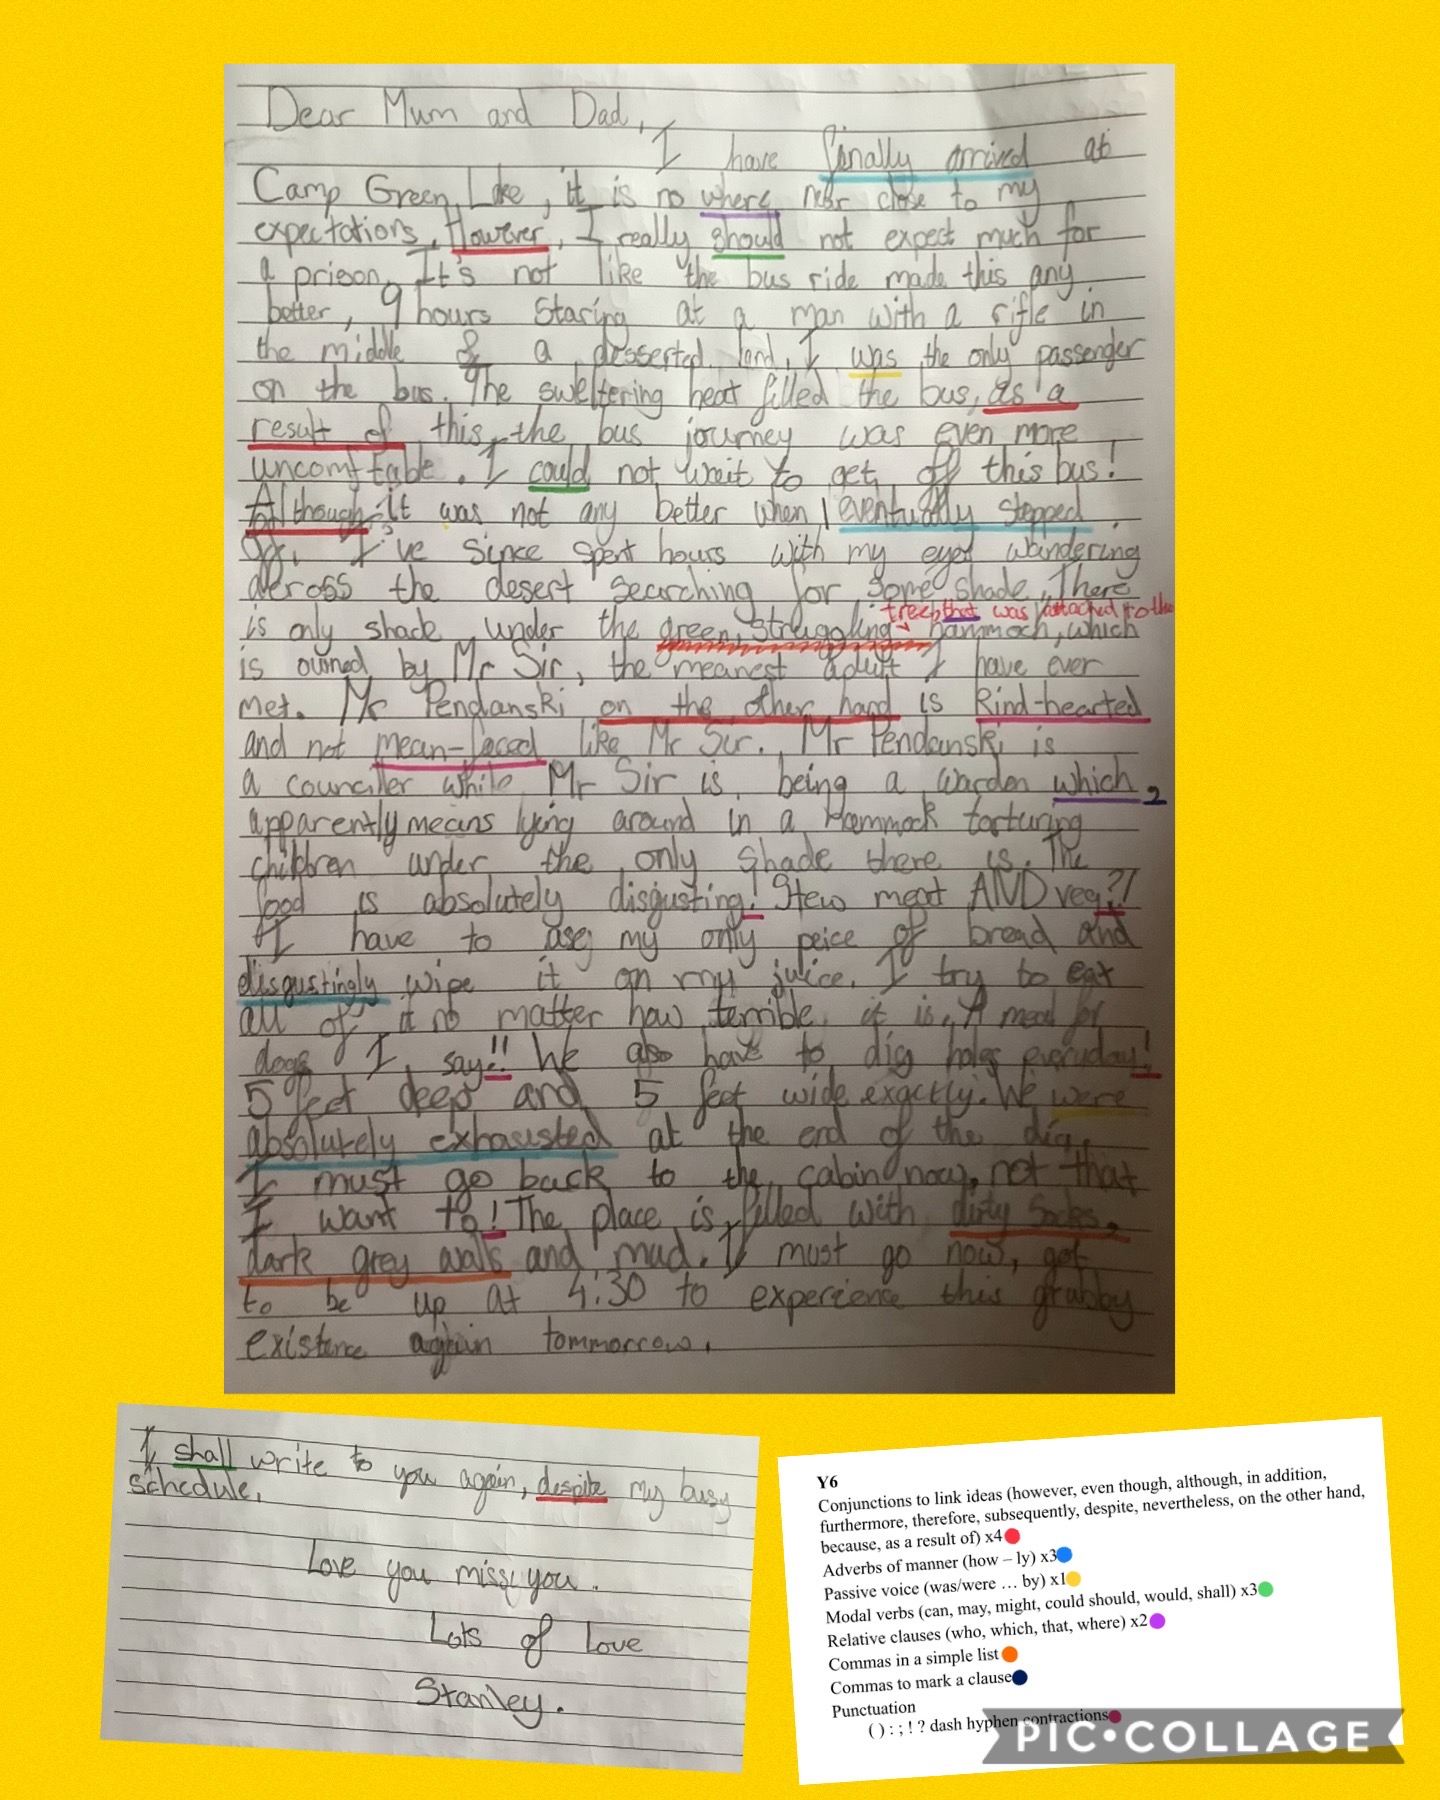 Dear Mum and Dad,
I have finally arrived at
Camp Green Lake, it is no where near close to my
expectations. However, I really should not expect much for
a prison. It's not like the bus ride made this any
better, 9 hours staring at a man with a rifle in
the middle of a desserted land. I was the only passenger
on the bus. The sweltering heat filled the bus, as a
result of this, the bus journey was even more
uncomftable. I could not wait to get off this bus!
Although it was not any better when I eventually stepped
off. I've since spent hours with my eyes wandering
across the desert searching for some shade. There
treep that was attached to the
is only shade under the green, struggling hammoch, which
is owned by Mr Sir, the meanest adult I have ever
met. Mr Pendanski on the other hand is kind-hearted
and not mean-faced like Mr Sir. Mr Pendanski is
a counciller while Mr Sir is being a warden which,
apparently means lying around in a Hammock torturing
children under the only shade there is. The
food is absolutely disgusting! Stew meat AND veg?!
I have to use my only peice of bread and
disgustingly wipe it on my juice. I try to eat
all of it no matter how terrible it is. A meal for
dogs I say!! We also have to dig holes everyday!
5 feet deep and 5 feet wide exgctly. We were
absolutely exhausted at the end of the dig.
I must go back to the cabin now, not that
I want to! The place is filled with dirty socks,
dark grey walls and mud. I must go now, got
to be up at 4:30 to experience this grubby
existence again tommorrow.
I shall write to you again, despite my busy
schedule.
Love you miss you.
Lots of Love
Stanley.
Y6
Conjunctions to link ideas (however, even though, although, in addition,
furthermore, therefore, subsequently, despite, nevertheless, on the other hand,
because, as a result of) x4
Adverbs of manner (how – ly) x3
Passive voice (was/were … by) x1
Modal verbs (can, may, might, could should, would, shall) x3
Relative clauses (who, which, that, where) x2
Commas in a simple list
Commas to mark a clause
Punctuation
( ) : ; ! ? dash hyphen contractions
PIC•COLLAGE